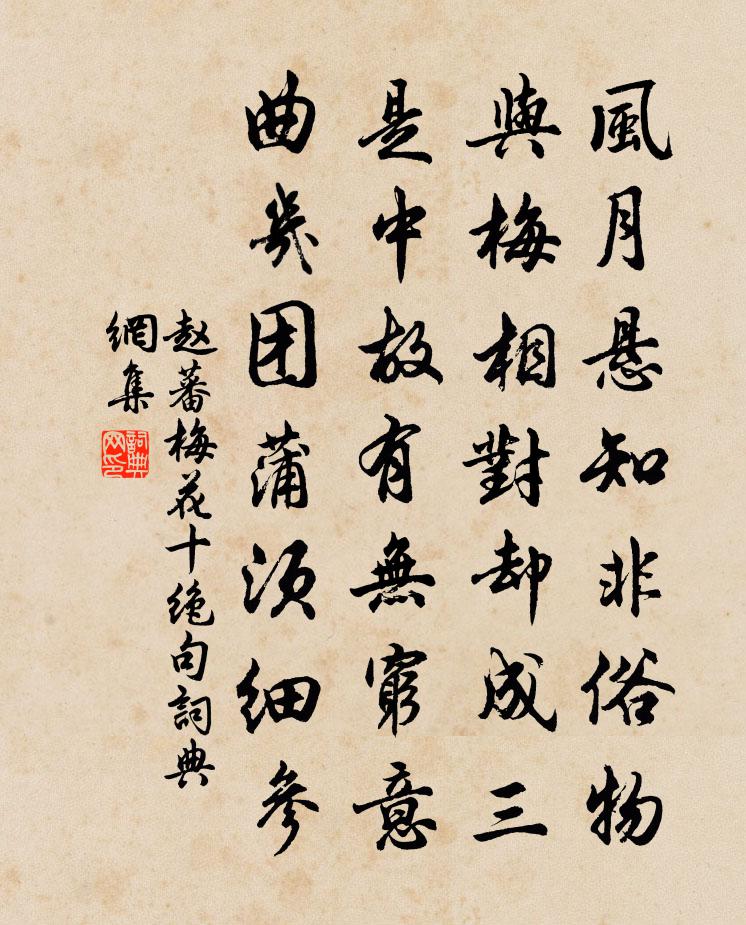 風月悬知非俗物
與梅相對却成三
是中故有無窮意
曲几团蒲须細參
赵蕃梅花十絶句詞典
網集
詞典网印